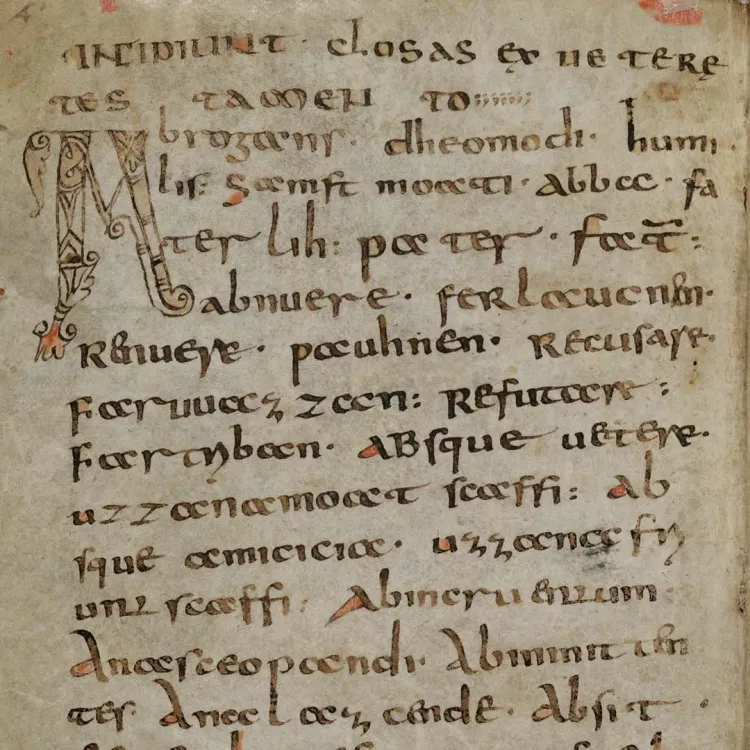 INCIPIUNT · CLOSAS EX UETERE
TES TAMEN TO
Abrogans · dheomodi · humi
lis: samft moati · abba · fa
ter lih: pater · fat̄:
abnuere · ferlaucnen ·
Renuere · pauhnen · Recusare ·
faruuazzan: Refutare:
fartriban · ABsque uetere ·
uzzana moat scaffi: Ab
sque amicicia · uzzana fri
unt scaffi: Abincruentum
Anasceopandi · Abinuiten
tes · Absit ·